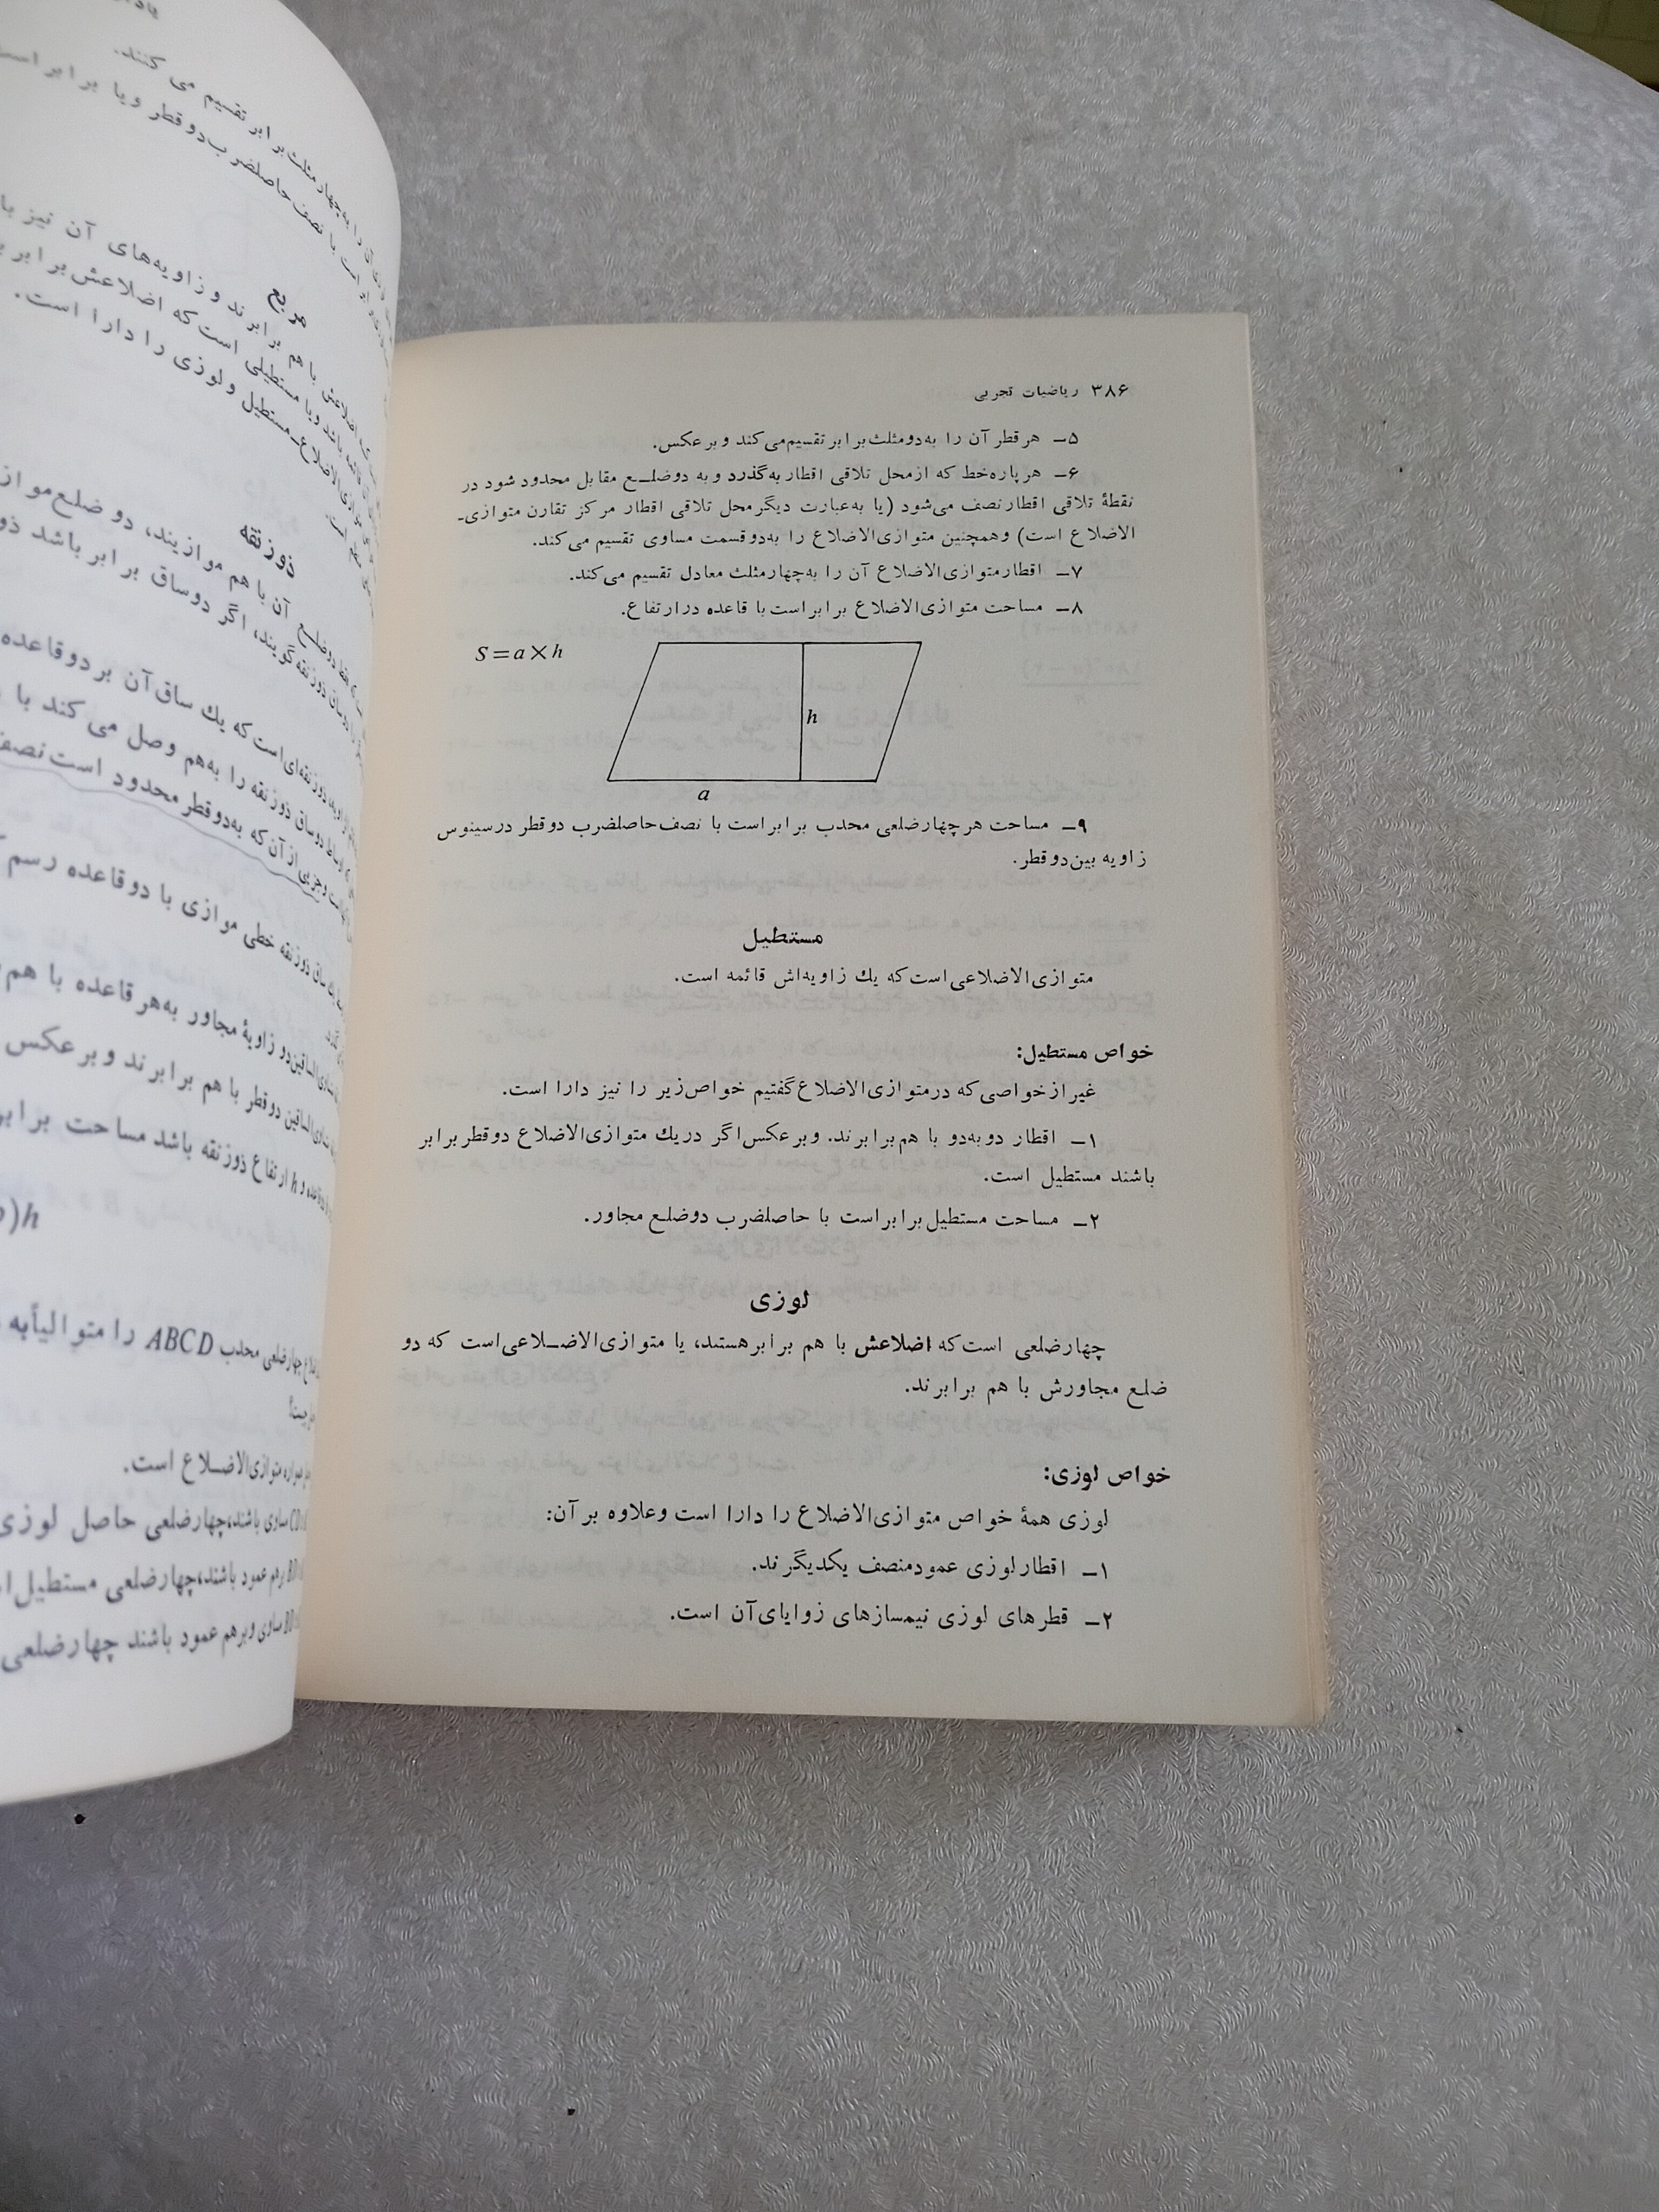 ۳۸۶ ریاضیات تجربی
۵ــ هر قطر آن را به‌دومثلث برابر تقسیم می‌کند و برعکس.
۶ــ هر پاره‌خط که از محل تلاقی اقطار به‌گذرد و به دو ضلــع مقابل محدود شود در
نقطهٔ تلاقی اقطار نصف می‌شود (یا به‌عبارت دیگر محل تلاقی اقطار مرکز تقارن متوازی‌ـ
الاضلاع است) وهمچنین متوازی‌الاضلاع را به‌دوقسمت مساوی تقسیم می‌کند.
۷ــ اقطار متوازی‌الاضلاع آن را به‌چهارمثلث معادل تقسیم می‌کند.
۸ــ مساحت متوازی‌الاضلاع برابر است با قاعده در ارتفاع.
S=a×h
h
a
۹ــ مساحت هر چهارضلعی محدب برابر است با نصف حاصلضرب دو قطر در سینوس
زاویه بین دو قطر.
مستطیل
متوازی‌الاضلاعی است که یك زاویه‌اش قائمه است.
خواص مستطیل:
غیر از خواصی که در متوازی‌الاضلاع گفتیم خواص زیر را نیز دارا است.
۱ــ اقطار دوبه‌دو با هم برابرند. وبرعکس اگر در یك متوازی‌الاضلاع دو قطر برابر
باشند مستطیل است.
۲ــ مساحت مستطیل برابر است با حاصلضرب دوضلع مجاور.
لوزی
چهارضلعی است که اضلاعش با هم برابر هستند، یا متوازی‌الاضــلاعی است که دو
ضلع مجاورش با هم برابرند.
خواص لوزی:
لوزی همهٔ خواص متوازی‌الاضلاع را دارا است وعلاوه بر آن:
۱ــ اقطار لوزی عمودمنصف یکدیگرند.
۲ــ قطرهای لوزی نیمسازهای زوایای آن است.
مثلث برابر تقسیم می کنند.
است با نصف حاصلضرب دو قطر ویا برابر است
مربع
اضلاعش با هم برابرند و زاویه‌های آن نیز با
باشد ویا مستطیلی است که اضلاعش برابر
متوازی‌الاضلاع ـ مستطیل و لوزی را دارا است.
ذوزنقه
دوضلــع آن با هم موازیند، دو ضلع مواز
ساق ذوزنقه گویند، اگر دوساق برابر باشد
ذوزنقه‌ای است که یك ساق آن بر دو قاعده
دوساق ذوزنقه را به‌هم وصل می کند با
وجزیی از آن که به‌دو قطر محدود است نصف
ساق ذوزنقه خطی موازی با دو قاعده رسم
دو زاویهٔ مجاور به‌هر قاعده با هم
دو قطر با هم برابرند و برعکس
و h ارتفاع ذوزنقه باشد مساحت برابر
)h
چهارضلعی محدب ABCD را متوالیاً به
متوازی‌الاضــلاع است.
مساوی باشند، چهارضلعی حاصل لوزی
برهم عمود باشند، چهارضلعی مستطیل
مساوی وبرهم عمود باشند چهارضلعی